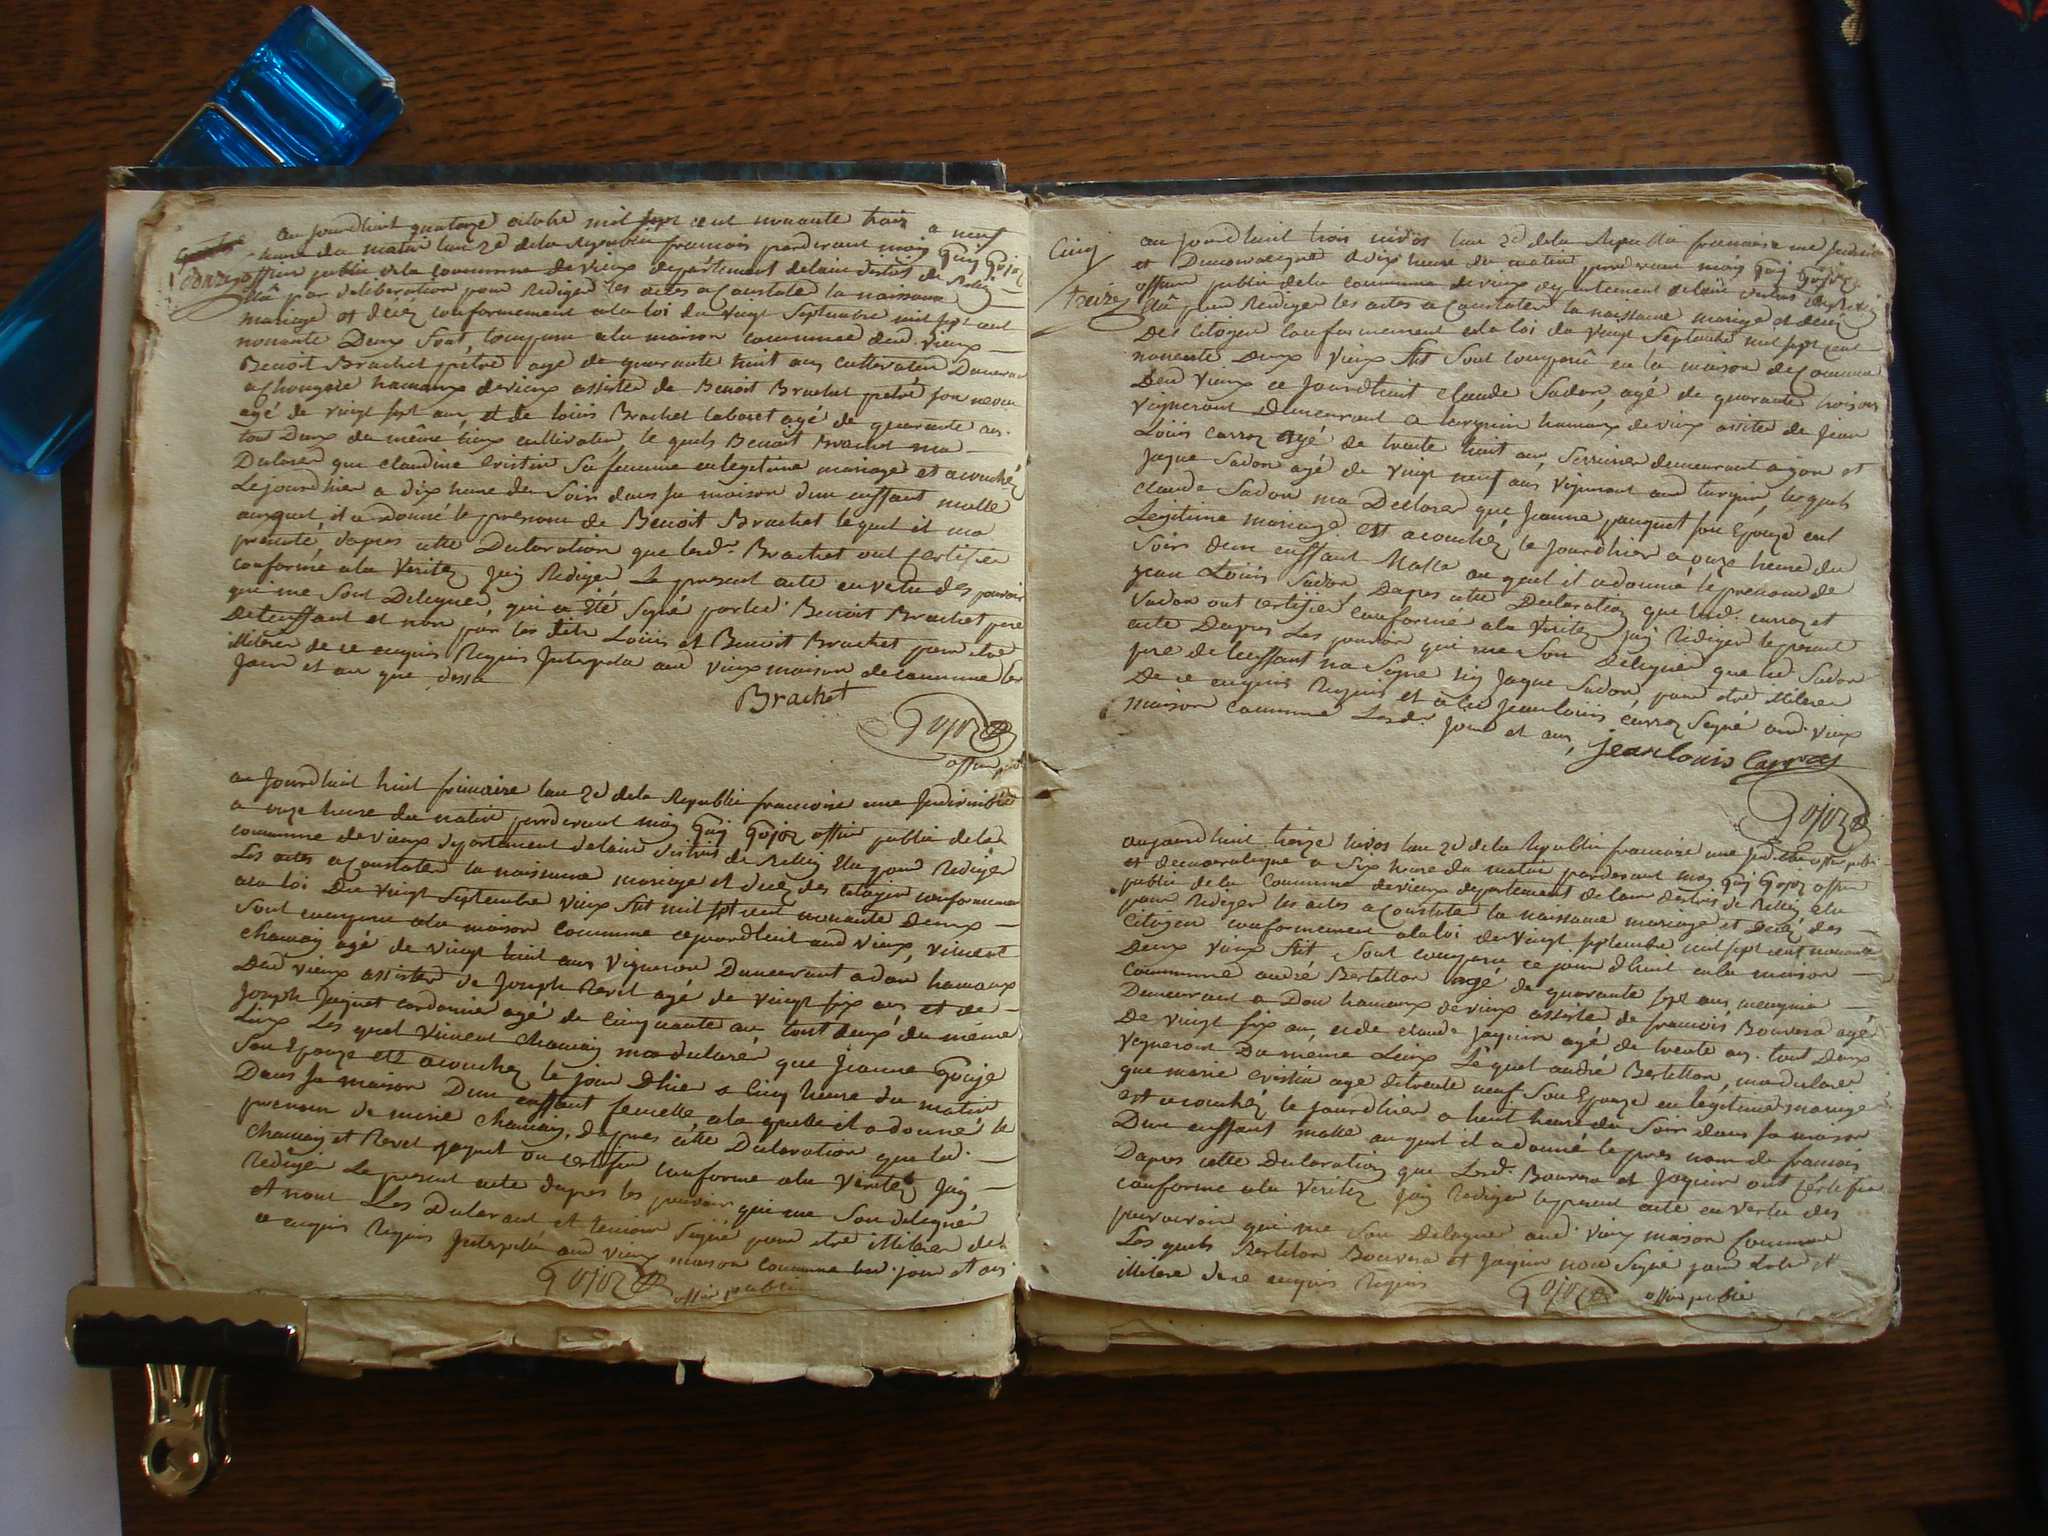 au jourdhuit quatorze octobre mil sept cent nonante trois a neuf
heure du matin lan 2e dela Republie francois pardevant moy Guy Gojoz
onze offier public dela commune devieux departement delain distris de
élû par deliberation pour Rediger les actes a Constater la naissance
mariage et decéz conformement ala loi du vingt Septembre mil sept cent
nonante Deux Sont, comparu ala maison commune dud. vieux
Benoit Brachet pétré agé de quarante huit ans cultivateur Demeurant
a chongnes hamaux devieux assister de Benoit Brachet pétré son neveu
agé de vingt sept an, et de louis Brachet laboret agé de quarante an.
tout Deux du même lieux cultivateur le quels Benoit Brachet ma
Dularer que claudine Cristin Sa femme en legitime mariage et acouchéz
Lejourdhier a dix heure du Soir dans sa maison dun enffant malle
auquel, il a donné le prenom de Benoit Brachet lequel il ma
presenté, dapres cette Dularation que lesdr. Brachet ont certifier
conforme ala Veritez jay Rediger Le present acte en vertu des pouvoir
qui me Sont Deleguer, qui a été Signé parled. Benoit Brachet pere
delenffant et non par les dits Louis et Benoit Brachet pour etre
illiterer de ce enquis Requis Interpeler aud vieux maison decommune les
jour et an que dessu
Brachet
Gojoz
offier public
au jourdhuit huit frimaire lan 2e dela Republie francoise une Indivisible
a onze heure du matin pardevant moy Guy Gojoz offier public dela
commune devieux departement delain distris de Belley Elu pour Rediger
Les actes a Constater la naissance mariage et decéz des citoyen conformement
ala loi Du vingt Septembre vieux Stil mil sept cent nonante deux
Sont comparu ala maison commune cejourdhuit aud vieux, vincent
chamay agé de vingt huit ans vigneron Demeurant a don hamaux
Dud vieux assister de Joseph Revel agé de vingt six an, et de
Joseph Jaquet cordonier agé de cinquante an tout deux du même
Lieux Les quel vincent chamay ma dularér que Jeanne
Son Epouze est acouchez le jour Dhier a cinq heure du matin
Dans sa maison Dun enffant femelle, ala quelle il a donné le
prenom de marie chamay, dapres cette Dularation que led.
chamay et Revel jaquet on certifier conforme ala Veritez Jay
redigé Le present acte dapres les pouvoir qui me Son deleguer
et nont Les Dularant et temoin Signé pour etre illiterer de
ce enquis Requis Interpelér aud vieux maison commune led. jour et an.
Gojoz
offier public
Cinq
treize
au jourdhuit trois nivôs lan 2e dela Republie francoise une Indivisi
et Democratique a dix heure du matin pardevant moy Guy Gojoz
offier public dela commune devieux departement delain distris
élû pour Rediger les actes a Constater la naissance mariage et decéz
Des Citoyen conformement ala loi du vingt Septembre mil sept cent
nonante Deux vieux Stil Sont comparû en la maison de commune
Dud vieux ce jourdhuit claude Sadon, agé de quarante trois ans
vigneront Demeurant a hamaux devieux assister de Jean
Louis Carroz agé de trente huit an, Serrurier demeurant et
Jaque Sadon agé de vingt neuf ans vigneront aud lesquels
claude Sadon ma Declorer que Jeanne pauquet son Epouze en
Legitime mariage est acouchéz le jourdhier a onze heure du
Soir dun enffant Malle au quel il adonné le prenom de
Jean Louis Sadon, Dapres cette Declaration que lesd. carroz et
Sadon ont certifier conforme ala Veritez jay Rediger le present
acte Dapres Les pouvoir qui me Son Delegué que led Sadon
pere de lenffant na Signe niy Jaque Sadon pour etre illiterer
De ce enquis Requis et a led Jean louis carroz Signé aud vieux
maison commune Lesdr. jour et an,
jean louis Carroz
Gojoz
aujourdhuit treize nivos lan 2e dela Republie francoise une
et democratique a Six heure du matin pardevant moy Guy Gojoz offier
public dela commune devieux departement delain distris de Belley, elu
pour Rediger les actes a Constater la naissance mariage et Decéz, des
Citoyen conformement ala loi du vingt Septembre mil sept cent nonante
Deux vieux Stil, Sont comparu ce jour dhuit ala maison
Commune andré Bertetton agé de quarante sept ans
Demeurant a Don hamaux devieux assister de francois Bouvera agé
De vingt six an, et de claude Jaquin agé de trente an. tout deux
vigneront Du même Lieux Le quel andré Bertetton, ma dularer
que marie cristin age de trente neuf Son Epouze en legitime mariage
est acouchéz le jourdhier a huit heure du Soir dans sa maison
Dun enffant malle au quel il adonné le pres nom de francois
Dapres cette Dularation que Lesd. Bouvera et Jaquin ont certifier
conforme ala Veritez jay rediger le present acte en vertu des
pouvoir qui me Son Deleguer aud vieux maison Commune
Les quels Bertiton Bouvera et Jaquin non Signé pour
illitere de ce enquis Requis
Gojoz offier public